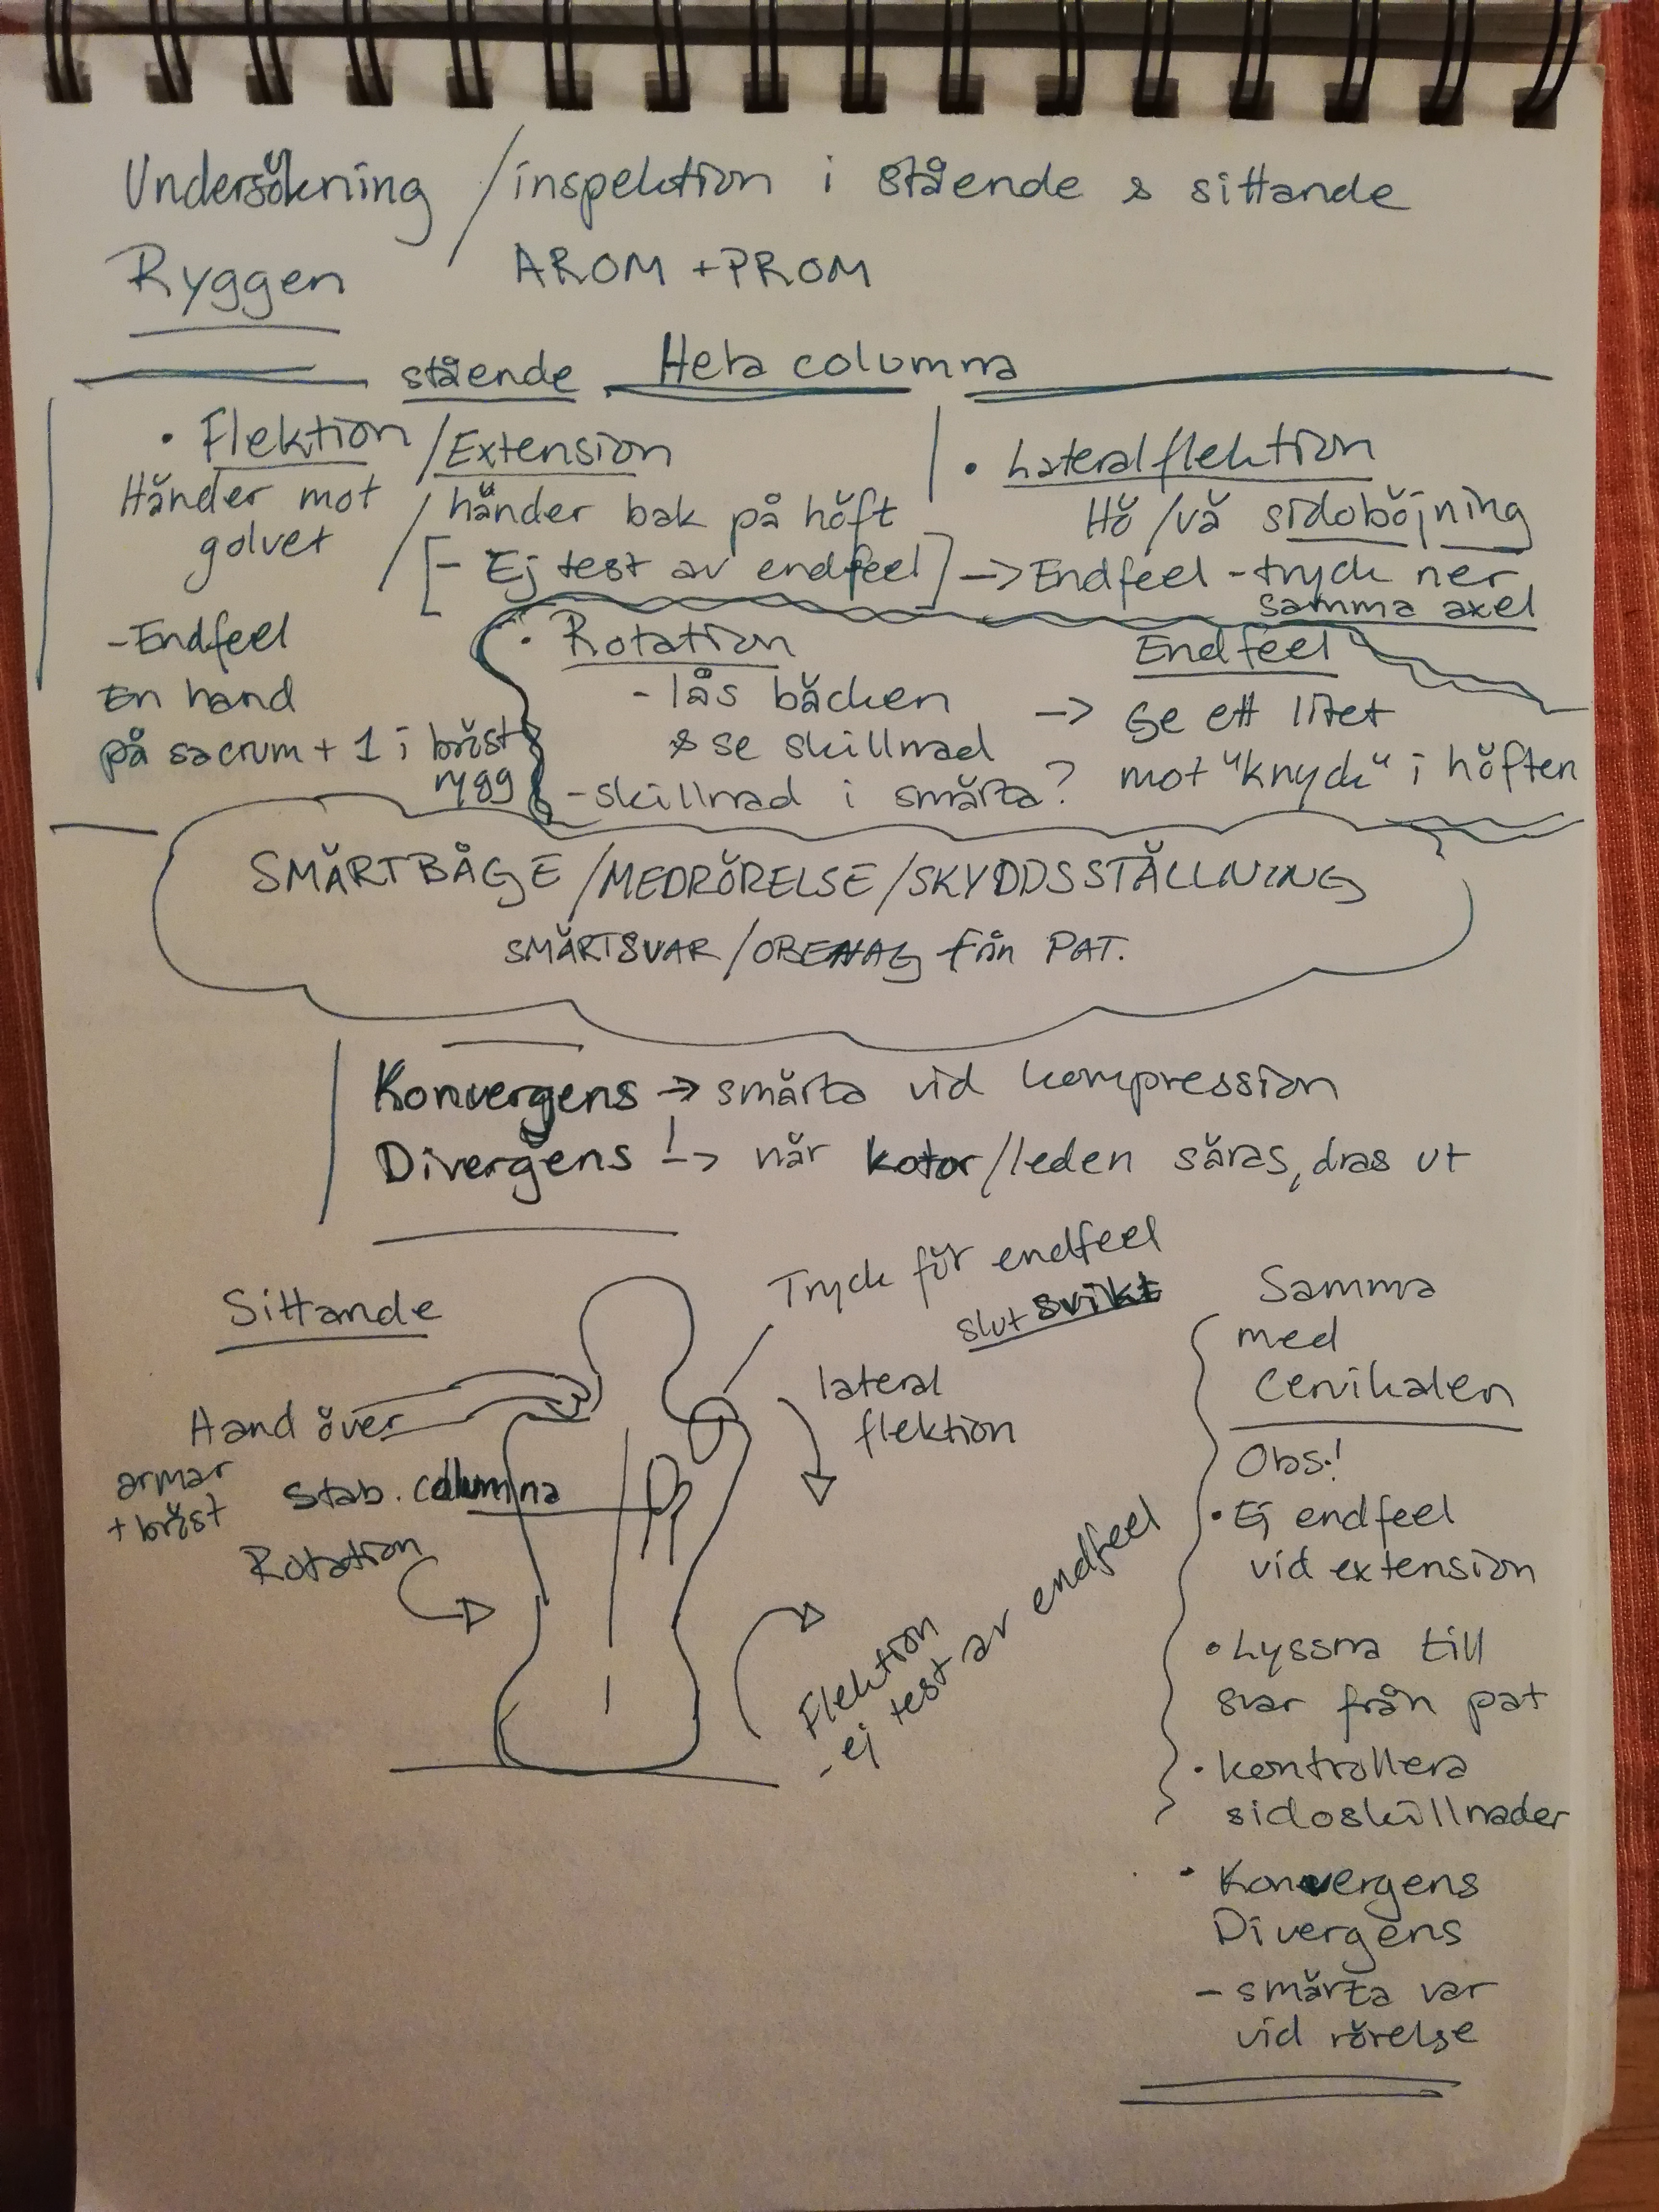 Undersökning / inspektion i stående & sittande
Ryggen AROM + PROM
stående Hela columna
• Flektion / Extension
Händer mot golvet / händer bak på höft
[- Ej test av endfeel]
- Endfeel
En hand
på sacrum + 1 i bröst
rygg
• Lateralflektion
Hö / vä sidoböjning
-> Endfeel - tryck ner
samma axel
• Rotation
- lås bäcken
& se skillnad
- skillnad i smärta?
Endfeel
-> Ge ett litet
mot "knyck" i höften
SMÄRTBÅGE / MEDRÖRELSE / SKYDDSSTÄLLNING
SMÄRTSVAR / OBEHAG från PAT.
Konvergens -> smärta vid kompression
Divergens -> när kotor/leden säras, dras ut
Sittande
Tryck för endfeel
slutsvikt
Hand över
armar
+ bröst
lateral
flektion
Stab. columna
Rotation
Flektion
- ej test av endfeel
Samma
med
Cervikalen
Obs!
• Ej endfeel
vid extension
• Lyssna till
svar från pat
• kontrollera
sidoskillnader
• Konvergens
Divergens
- smärta var
vid rörelse